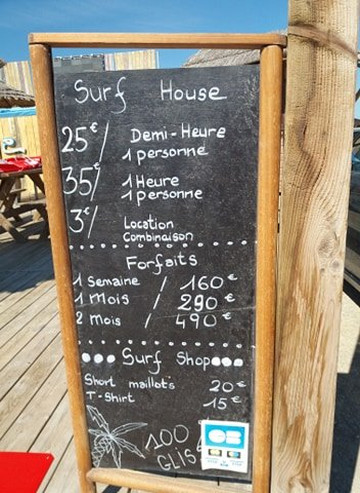 Surf House
25€/ Demi-Heure
1 personne
35/ 1 Heure
1 personne
3€/ Location
Combinaison
Forfaits
1 Semaine / 160€
1 Mois / 290€
2 Mois / 490€
Surf Shop
Short maillots 20€
T-Shirt 15€
100
GLIS
CB